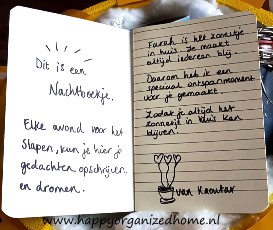 Dit is een
Nachtboekje.
Elke avond voor het
slapen, kun je hier je
gedachten opschrijven.
en dromen.
Farah is het zonnetje
in huis. Je maakt
altijd iedereen blij.
Daarom heb ik een
speciaal ontspanmoment
voor je gemaakt.
Zodat je altijd het
zonnetje in huis kan
blijven.
van Kaoutar
www.happyorganizedhome.nl